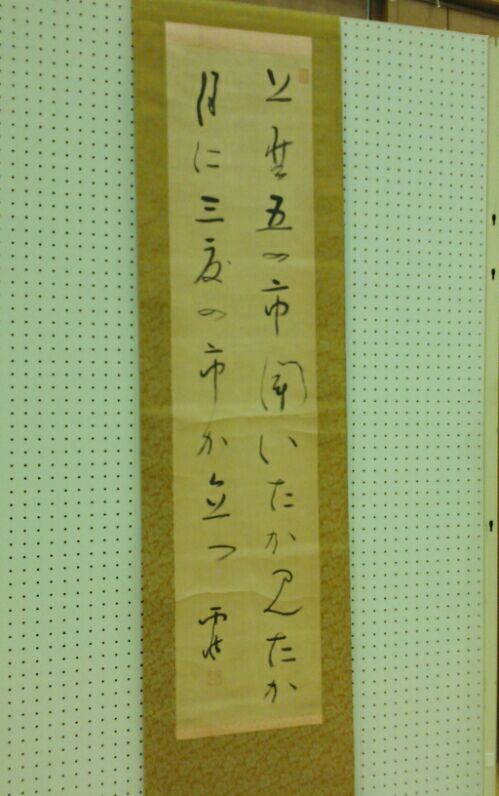 五の市聞いたか見たか
月に三度の市か立つ 雨情